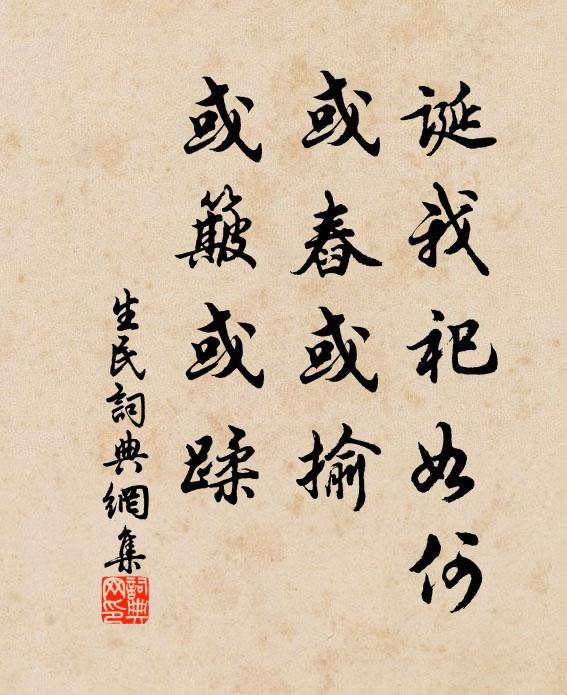 誕我祀如何
或舂或揄
或簸或蹂
生民詞典網集
詞典网印